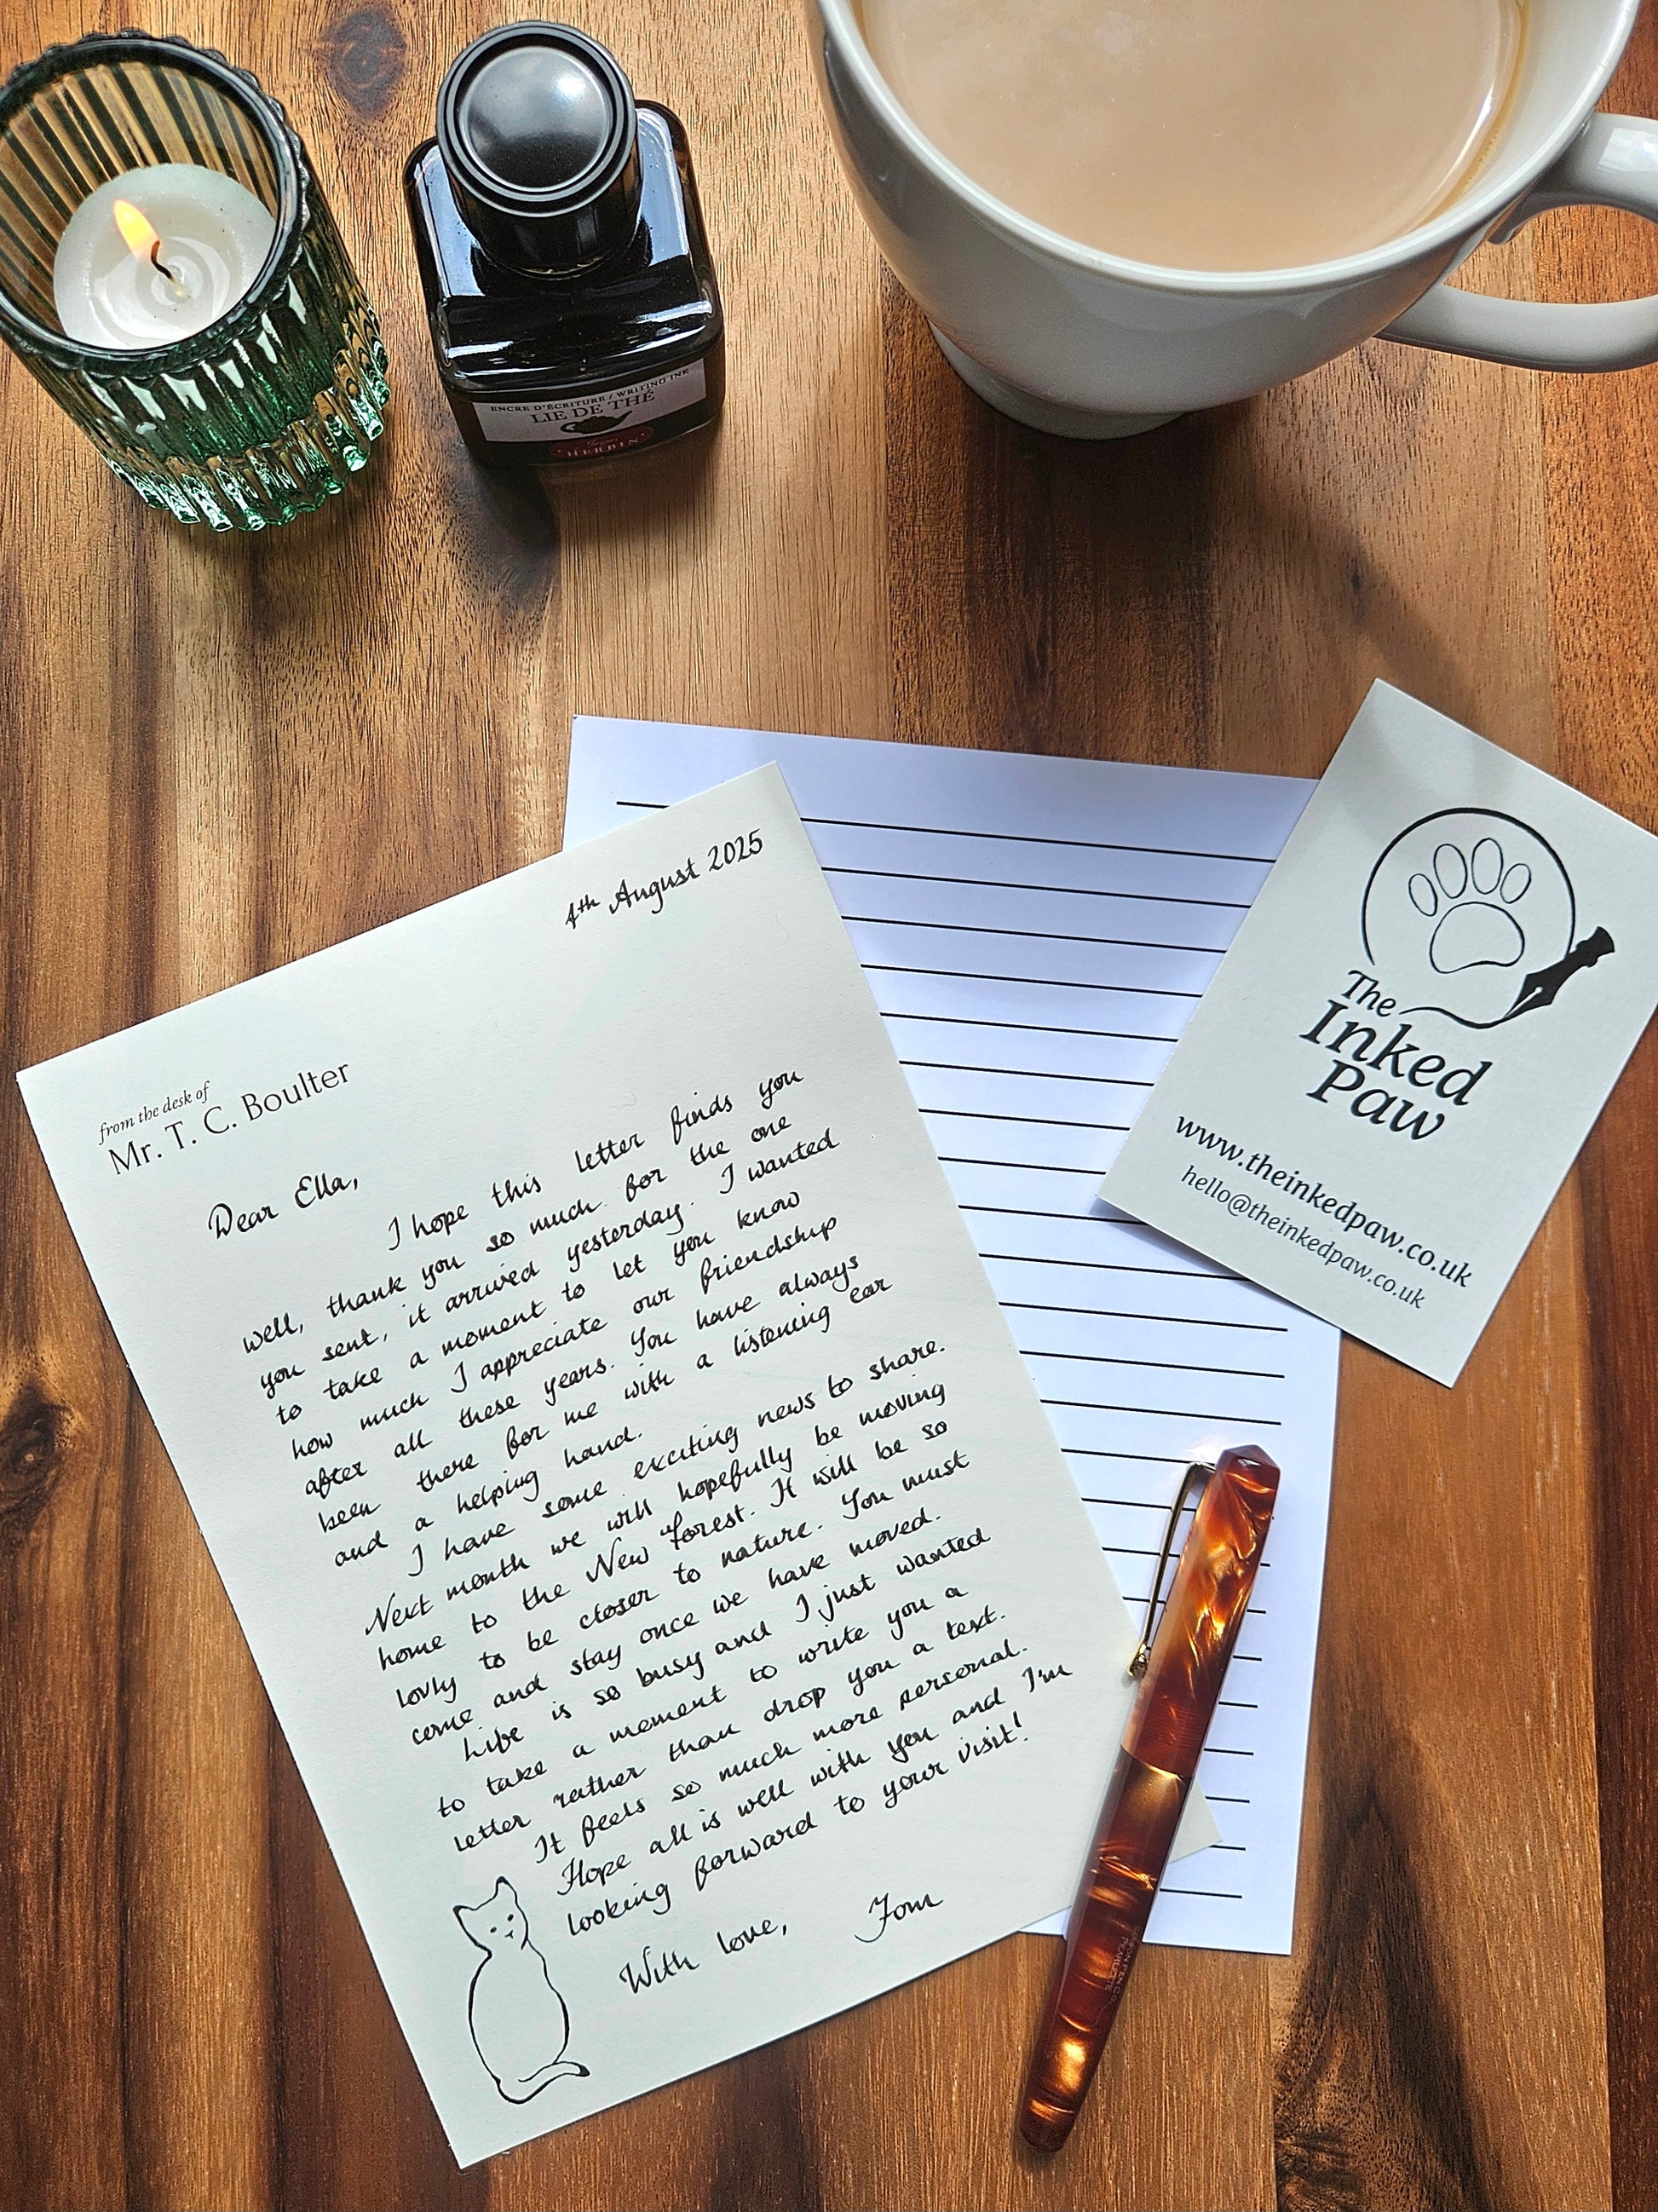 ENCRE D'ÉCRITURE / WRITING INK
LIE DE THÉ
HERBIN
4th August 2025
from the desk of
Mr. T. C. Boulter
Dear Ella,
I hope this letter finds you
well, thank you so much for the one
you sent, it arrived yesterday. I wanted
to take a moment to let you know
how much I appreciate our friendship
after all these years. You have always
been there for me with a listening ear
and a helping hand.
I have some exciting news to share.
Next month we will hopefully be moving
home to the New Forest. It will be so
lovly to be closer to nature. You must
come and stay once we have moved.
Life is so busy and I just wanted
to take a moment to write you a
letter rather than drop you a text.
It feels so much more personal.
Hope all is well with you and I'm
looking forward to your visit!
With love,
Tom
The
Inked
Paw
www.theinkedpaw.co.uk
hello@theinkedpaw.co.uk